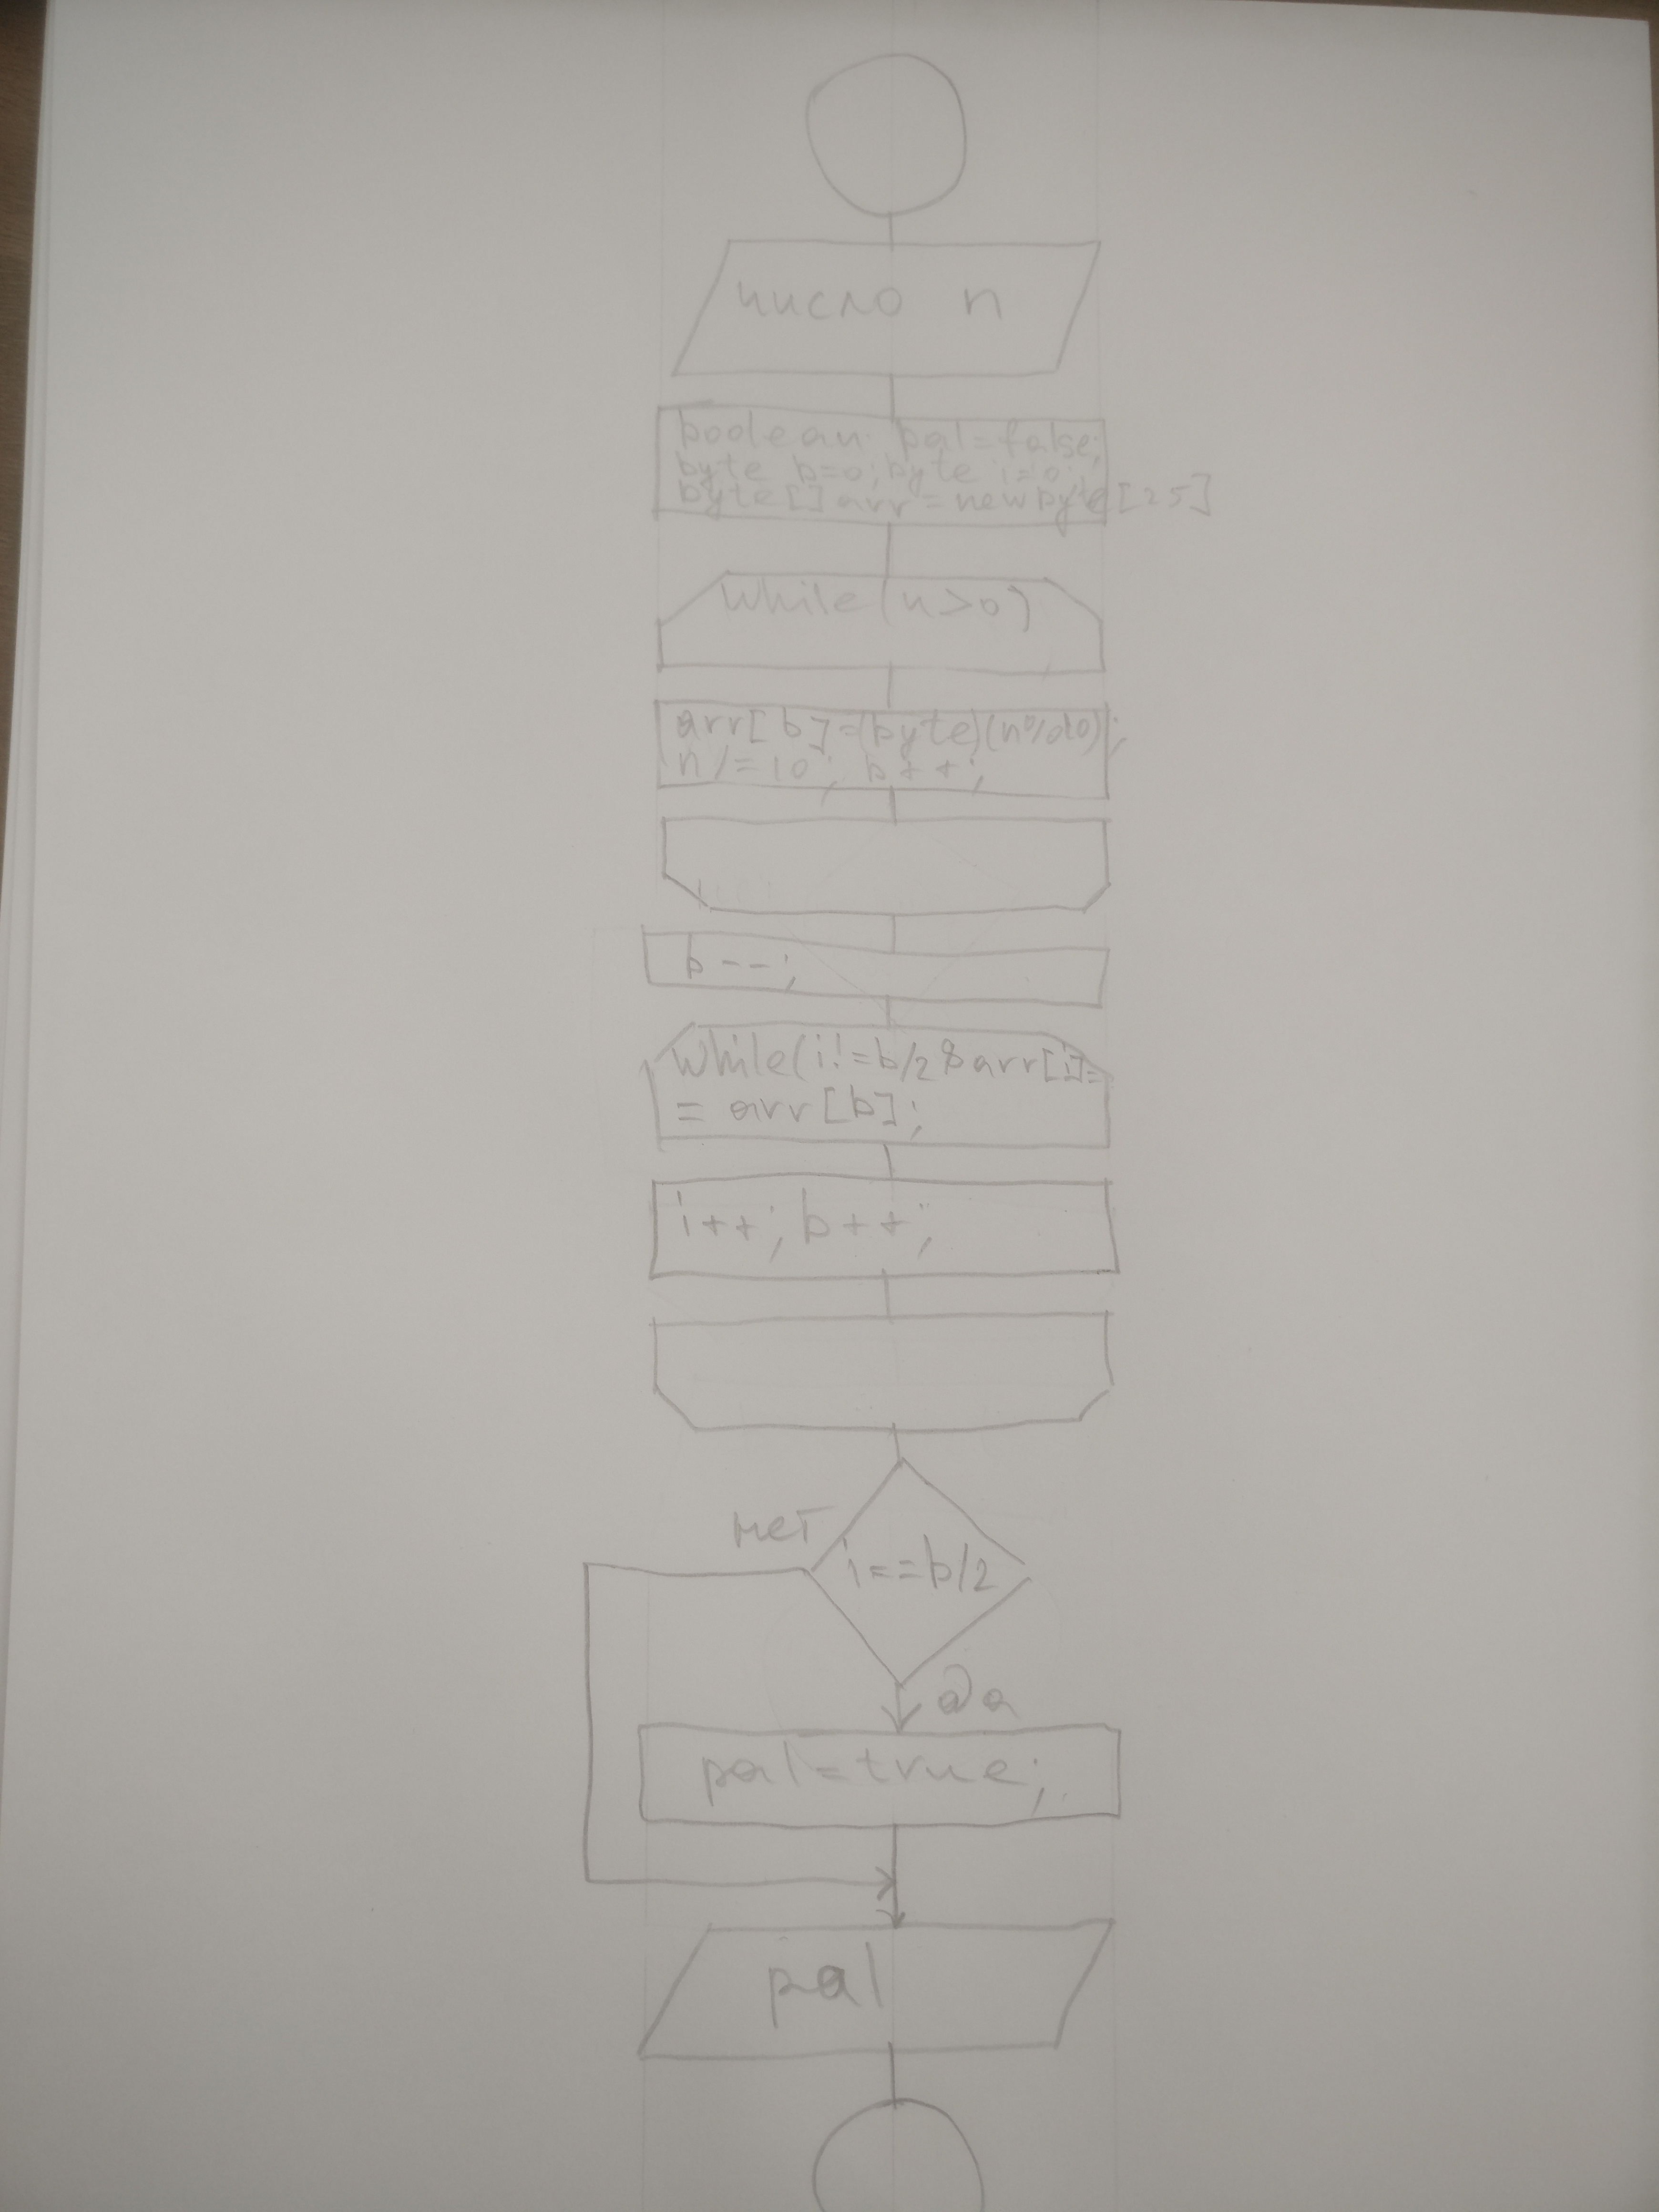 число n
boolean pal=false;
byte b=0; byte i=0;
byte[] arr = new byte[25]
while(n>0)
arr[b]=(byte)(n%10);
n/=10; b++;
b--;
while(i!=b/2&arr[i]=
= arr[b];
i++; b++;
нет
i==b/2
да
pal=true;
pal